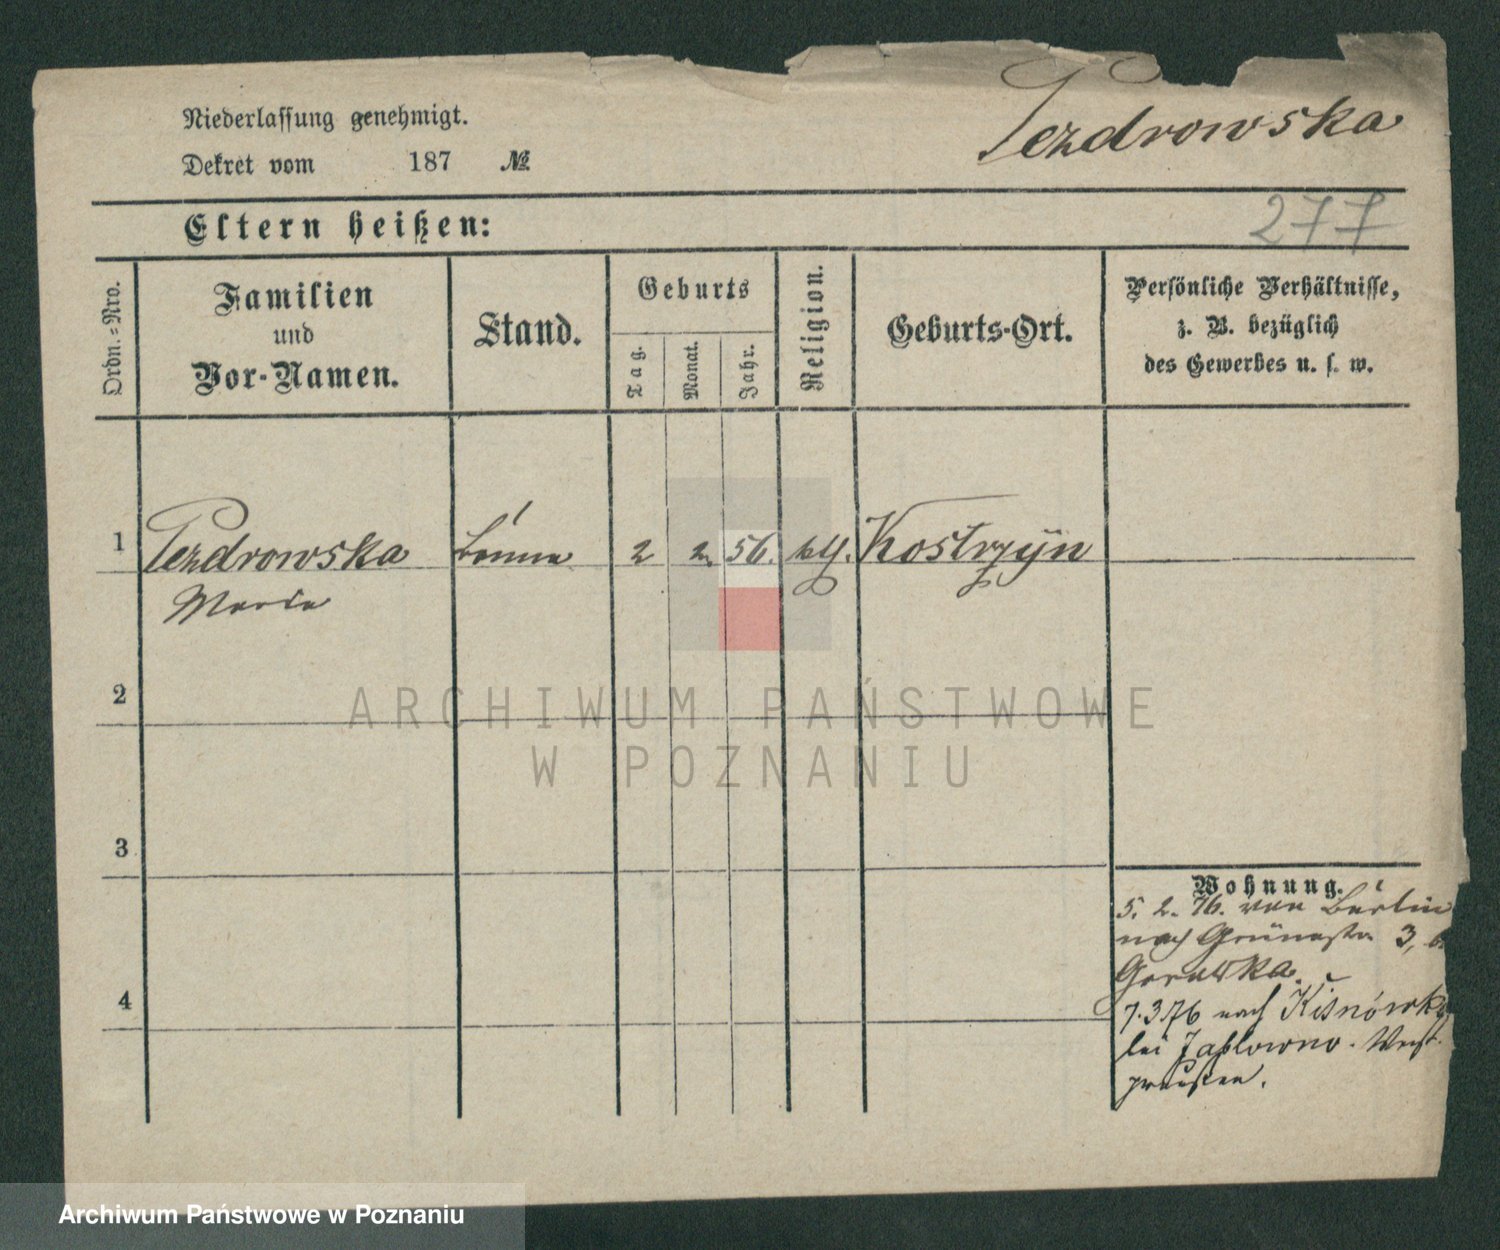 Niederlassung genehmigt.
Dekret vom 187 №
Pezdrowska
Eltern heißen:
277
Ordn.=Nro.
Familien
und
Vor-Namen.
Stand.
Geburts
Tag.
Monat.
Jahr.
Religion.
Geburts-Ort.
Persönliche Verhältnisse,
z. B. bezüglich
des Gewerbes u. s. w.
1 Pezdrowska Bonne 2 2. 56. kth. Kostrzyn
Marie
2
ARCHIWUM PAŃSTWOWE
W POZNANIU
3
4
Wohnung.
5. 2. 76. von Berlin
nach Grünestr 3, b.
7.3.76 nach
bei Jablowno. West
preußen.
Archiwum Państwowe w Poznaniu